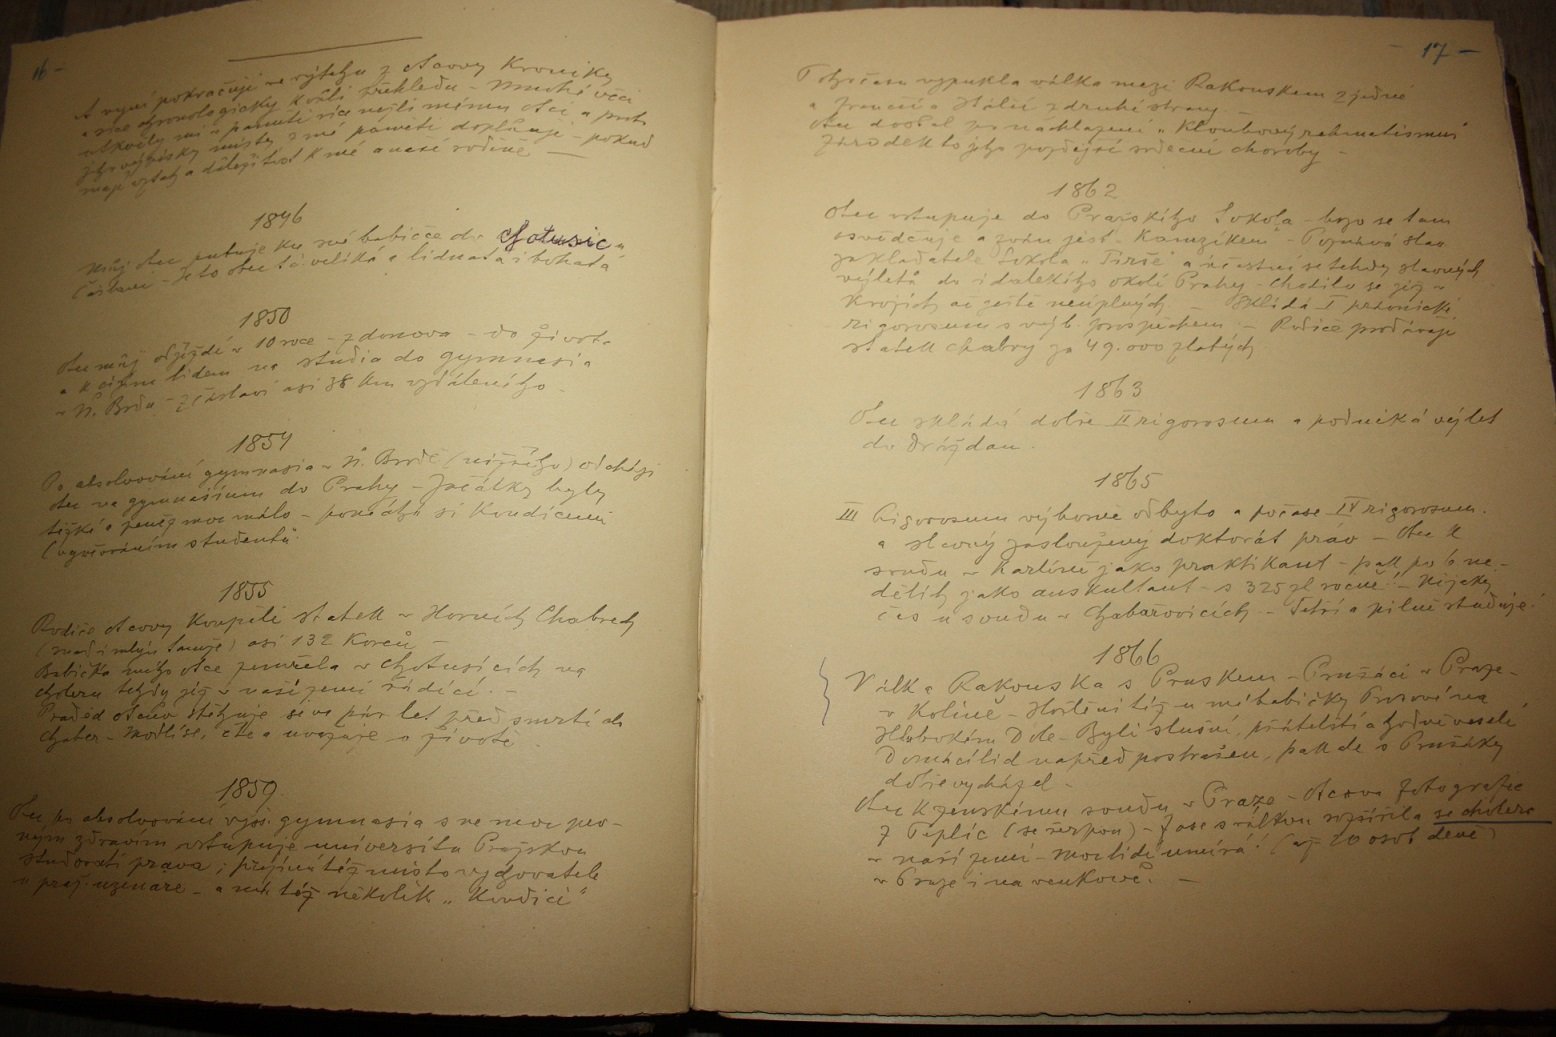 16 –
A nyní pokračuji ve výtahu z otcovy Kroniky
a sice chronologicky kvůli přehledu – Mnohé věci
utkvěly mi v paměti více nežli mému otci a proto
jeho výpisky místy z mé paměti doplňuji – pokud
mají vztah a důležitost k mé a naší rodině –
1846
Můj otec putuje ku své babičce do Chotusic u
Čáslavi – je to obec tá veliká a lidnatá i bohatá
1850
Otec můj odjíždí v 10 roce – z domova – do života
a k cizím lidem na studia do gymnasia
v N. Brodu – z Čáslavi asi 38 km vzdáleného –
1854
Po absolvování gymnasia v N. Brodě (nižšího) odchází
otec na gymnasium do Prahy – Začátky byly
těžké a peněz moc málo – pomáhá si kondicemi
(vyučováním studentů
1855
Rodiče otcovy koupili statek v Horních Chabrech
(snad i mlýn tamže) asi 132 korců –
Babička mého otce zemřela v Chotusicích na
choleru tehdy již v naší zemi řádící. –
Praděd otcův stěhuje se ve pár let před smrtí do
Chaber – Modlí se, čte a uvažuje o životě
1859
Otec po absolvování vyš. gymnasia s ne moc pev-
ným zdravím vstupuje universitu Pražskou
studovati práva; přijímá též místo vychovatele
u praž. uzenáře – a má též několik „Kondicí"
– 17 –
Tohočasu vypukla válka mezi Rakouskem z jedné
a Francií a Itálií z druhé strany
Otec dostal po nachlazení „Kloubový rehmatismus
zárodek to jeho pozdější srdeční choroby –
1862
Otec vstupuje do Pražského Sokola – brzo se tam
osvědčuje a zván jest „Kamzíkem" – Poznává slav.
zakladatele Sokola „Tirše" a účastní se tehdy slavných
výletů do i dalekého okolí Prahy – Chodilo se již v
krojích ač ještě neúplných – Skládá I právnické
rigorosum s výb. prospěchem – Rodiče prodávají
statek Chabry za 49.000 zlatých
1863
Otec skládá dobře II rigorosum a podniká výlet
do Drážďan.
1865
III Rigorosum výborně odbyto a počase IV rigorosum.
a slavný zasloužený doktorát práv – Otec k
soudu v Karlíně jako praktikant – pak po 6 ne-
dělích jako auskultant – s 325 zl ročně! – Nějaký
čas u soudu v Chabařovicích – Šetří a pilně studuje!
1866
Válka Rakouska s Pruskem – Prušáci v Praze –
v Kolíně – Hoštění též u mé babičky na
Hlubokém Dole – Byli slušní, přátelští a hodně veselí
Domácí lid napřed postrašen, pak ale s Prušáky
dobře vycházel –
Otec k zemskému soudu v Praze – Otcova fotografie
z Teplic (se šerpou) – Zase s válkou rozšířila se cholera
v naší zemi – moc lidí umírá! (až 20 osob denně)
v Praze i na venkově. –